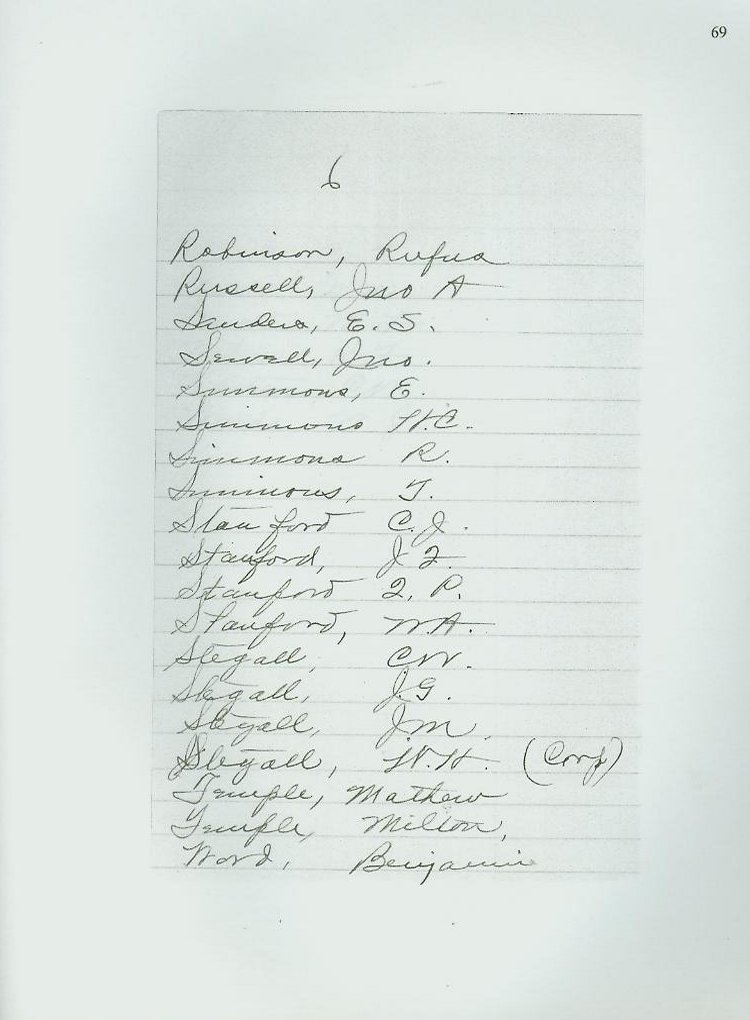 69
6
Robinson, Rufus
Russell, Jno A
Sanders, E. S.
Sewell, Jno.
Simmons, E.
Simmons W.C.
Simmons R.
Simmons, T.
Stanford C.J.
Stanford, J
Stanford P.
Stanford, W.A.
Stegall, C.W.
Stegall, J.G.
Stegall, J.M.
Stegall, W.H. (Corp)
Temple, Mathew
Temple, Milton,
Word, Benjamin